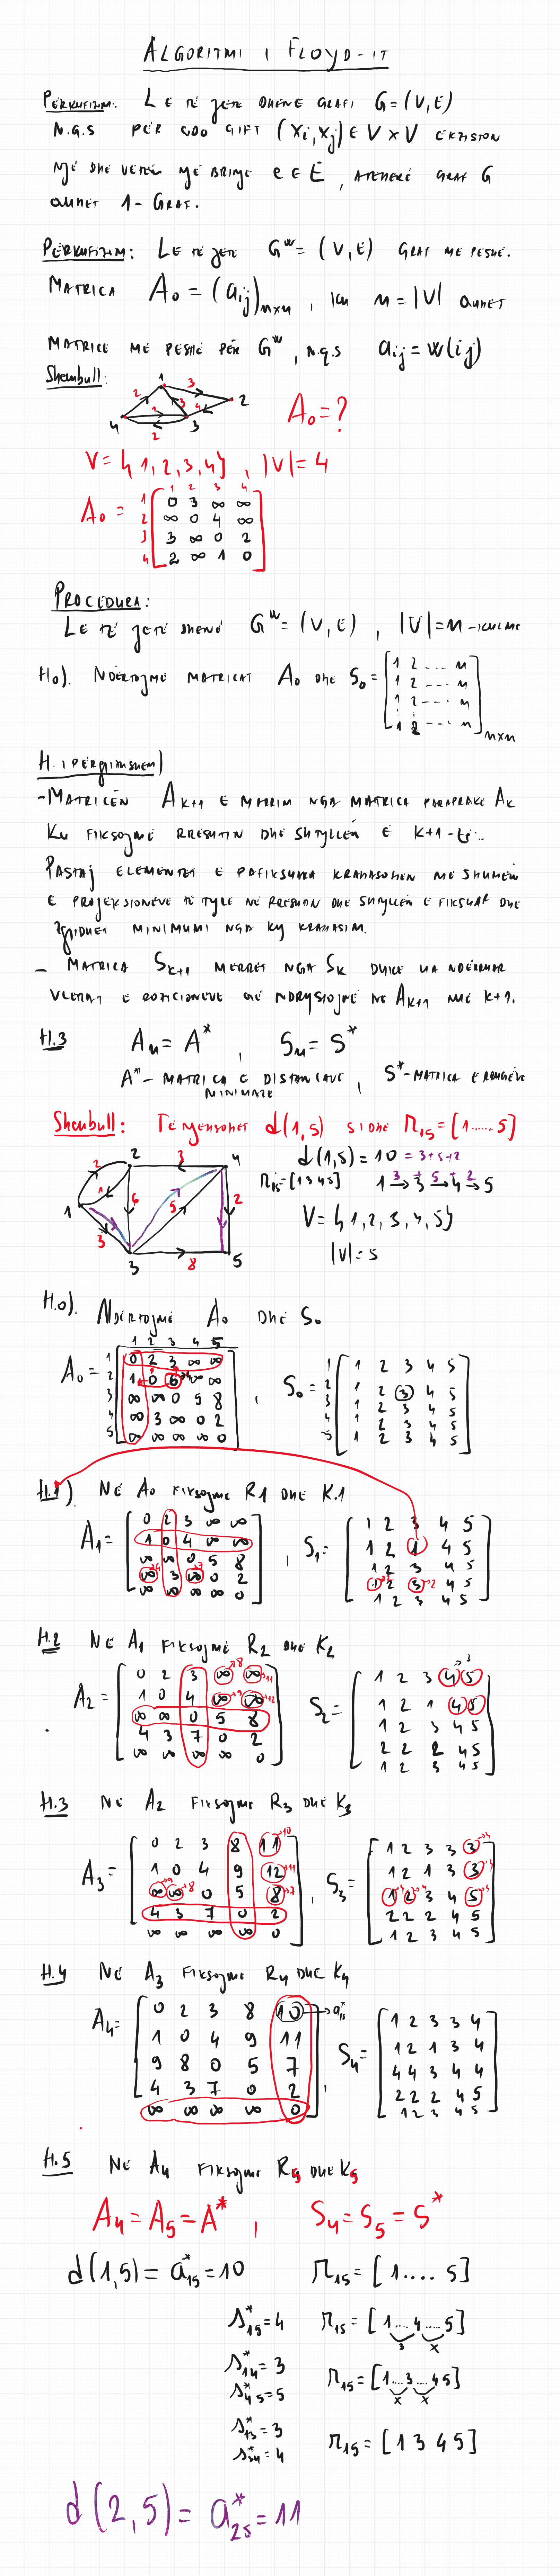 ALGORITMI I FLOYD-IT
PËRKUFIZIM: LE TË JETË DHËNË GRAFI G=(V,E)
N.Q.S PËR ÇDO ÇIFT (xi,xj) ∈ V×V EKZISTON
NJË DHE VETËM NJË BRINJË e∈E, ATËHERË GRAF G
QUHET 1-GRAF.
PËRKUFIZIM: LE TË JETË G^w=(V,E) GRAF ME PESHË.
MATRICA A₀=(aij)n×n, KU n=|V| QUHET
MATRICË ME PESHË PËR G^w, N.Q.S aij=w(ij)
Shembull:
1 2 3 4
2 3 3 4 1 2
A₀=?
V={1,2,3,4}, |V|=4
1 2 3 4
A₀=
1 0 3 ∞ ∞
2 ∞ 0 4 ∞
3 3 ∞ 0 2
4 2 ∞ 1 0
PROCEDURA:
LE TË JETË DHËNË G^w=(V,E), |V|=n-KULME
H₀). NDËRTOJMË MATRICAT A₀ DHE S₀=
1 2 .... n
1 2 --- n
1 2 --- n
1 2 --- n
n×n
H. I PËRGJITHSHËM)
-MATRICËN Ak+1 E MARRIM NGA MATRICA PARAPRAKE Ak
KU FIKSOJMË RRESHTIN DHE SHTYLLËN E K+1-të..
PASTAJ ELEMENTET E PAFIKSUARA KRAHASOHEN ME SHUMËN
E PROJEKSIONEVE TË TYRE NË RRESHTIN DHE SHTYLLËN E FIKSUAR DHE
ZGJIDHET MINIMUMI NGA KY KRAHASIM.
- MATRICA Sk+1 MERRET NGA Sk DUKE UA NDËRRUAR
VLERAT E POZICIONEVE QË NDRYSHOJNË NË Ak+1 ME K+1.
H.3 An=A*, Sn=S*
A*-MATRICA E DISTANCAVE MINIMALE, S*-MATRICA E RRUGËVE
Shembull: TË GJENDET d(1,5) SI DHE π₁₅=[1.....5]
1 2 3 4 5
2 1 3 6 3 5 2 8
d(1,5)=10 =3+5+2
π₁₅=[1345] 1 3→ 3 5→ 4 2→ 5
V={1,2,3,4,5}
|V|=5
H.0). NDËRTOJMË A₀ DHE S₀
1 2 3 4 5
A₀=
1 0 2 3 ∞ ∞
2 1 0 6 ∞ ∞
3 ∞ ∞ 0 5 8
4 ∞ 3 ∞ 0 2
5 ∞ ∞ ∞ ∞ 0
, S₀=
1 1 2 3 4 5
2 1 2 3 4 5
3 1 2 3 4 5
4 1 2 3 4 5
5 1 2 3 4 5
H.1). NË A₀ FIKSOJMË R1 DHE K.1
A₁=
0 2 3 ∞ ∞
1 0 4 ∞ ∞
∞ ∞ 0 5 8
∞→4 3 ∞→7 0 2
∞ ∞ ∞ ∞ 0
, S₁=
1 2 3 4 5
1 2 1 4 5
1 2 3 4 5
1→2 2 3→2 4 5
1 2 3 4 5
H.2 NË A₁ FIKSOJMË R₂ DHE K₂
A₂=
0 2 3 ∞→8 ∞→11
1 0 4 ∞→9 ∞→12
∞ ∞ 0 5 8
4 3 7 0 2
∞ ∞ ∞ ∞ 0
S₂=
1 2 3 4→3 5
1 2 1 4 5
1 2 3 4 5
2 2 2 4 5
1 2 3 4 5
H.3 NË A₂ FIKSOJMË R₃ DHE K₃
A₃=
0 2 3 8 11→10
1 0 4 9 12→11
∞→9 ∞→8 0 5 8→7
4 3 7 0 2
∞ ∞ ∞ ∞ 0
, S₃=
1 2 3 3 3→4
1 2 1 3 3→4
1→4 2→4 3 4 5→4
2 2 2 4 5
1 2 3 4 5
H.4 NË A₃ FIKSOJMË R₄ DHE K₄
A₄=
0 2 3 8 10 → a*₁₅
1 0 4 9 11
9 8 0 5 7
4 3 7 0 2
∞ ∞ ∞ ∞ 0
, S₄=
1 2 3 3 4
1 2 1 3 4
4 4 3 4 4
2 2 2 4 5
1 2 3 4 5
H.5 NË A₄ FIKSOJMË R₅ DHE K₅
A₄=A₅=A*, S₄=S₅=S*
d(1,5)=a*₁₅=10 π₁₅=[1.... 5]
s*₁₅=4 π₁₅=[1....4....5]
3 x
s*₁₄=3
s*₄₅=5 π₁₅=[1...3....45]
x x
s*₁₃=3
s*₃₄=4 π₁₅=[1345]
d(2,5)=a*₂₅=11